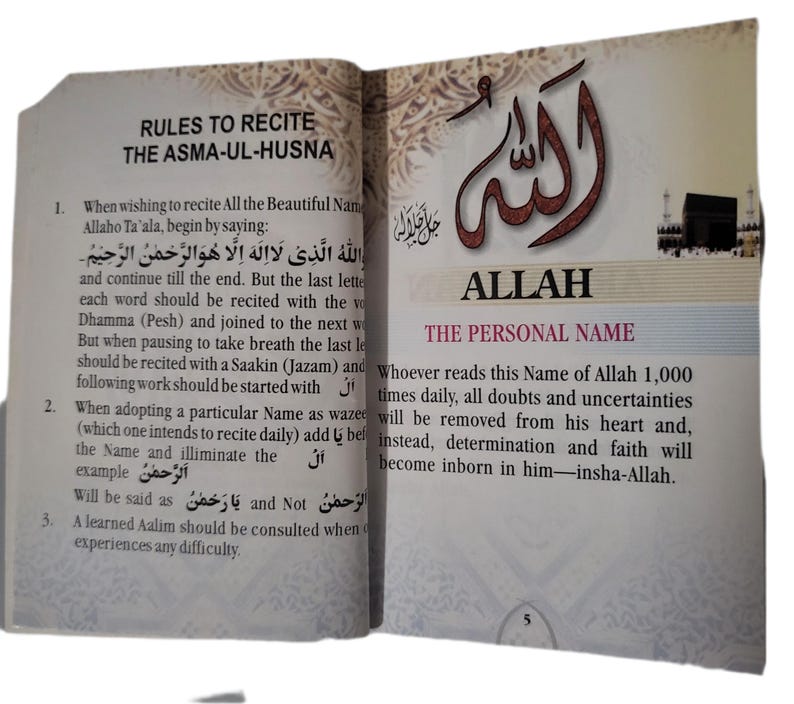 RULES TO RECITE
THE ASMA-UL-HUSNA
1. When wishing to recite All the Beautiful
Allaho Ta'ala, begin by saying:
اللهُ الَّذِىْ لَا اِلٰهَ اِلَّا هُوَالرَّحْمٰنُ الرَّحِيْمُ۔
and continue till the end. But the last
each word should be recited with the
Dhamma (Pesh) and joined to the next
But when pausing to take breath the last
should be recited with a Saakin (Jazam) and
following work should be started with اَلُ
2. When adopting a particular Name as
(which one intends to recite daily) add يَا
the Name and illiminate the اَلُ
example اَلرَّحْمٰنُ
Will be said as يَا رَحْمٰنُ and Not اَلرَّحْمٰنُ
3. A learned Aalim should be consulted when
experiences any difficulty.
اَللّٰهُ
جَلَّ جَلَالُهُ
ALLAH
THE PERSONAL NAME
Whoever reads this Name of Allah 1,000
times daily, all doubts and uncertainties
will be removed from his heart and,
instead, determination and faith will
become inborn in him—insha-Allah.
5